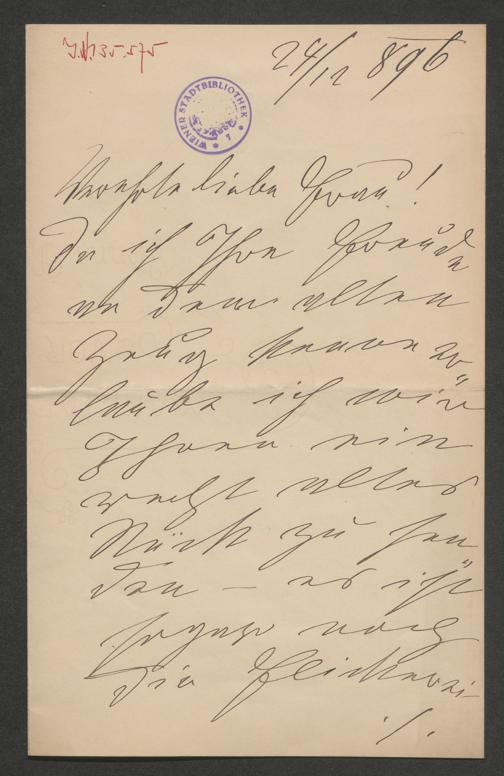 J.N. 35.575
24/12 896
WIENER STADTBIBLIOTHEK
Verehrte liebe Frau!
Da ich Ihre Freude
an dem alten
Zeug kenne er-
laube ich mir
Ihnen ein
recht altes
Stück zu sen
den – es ist
sogar noch
die Flickerei
./.